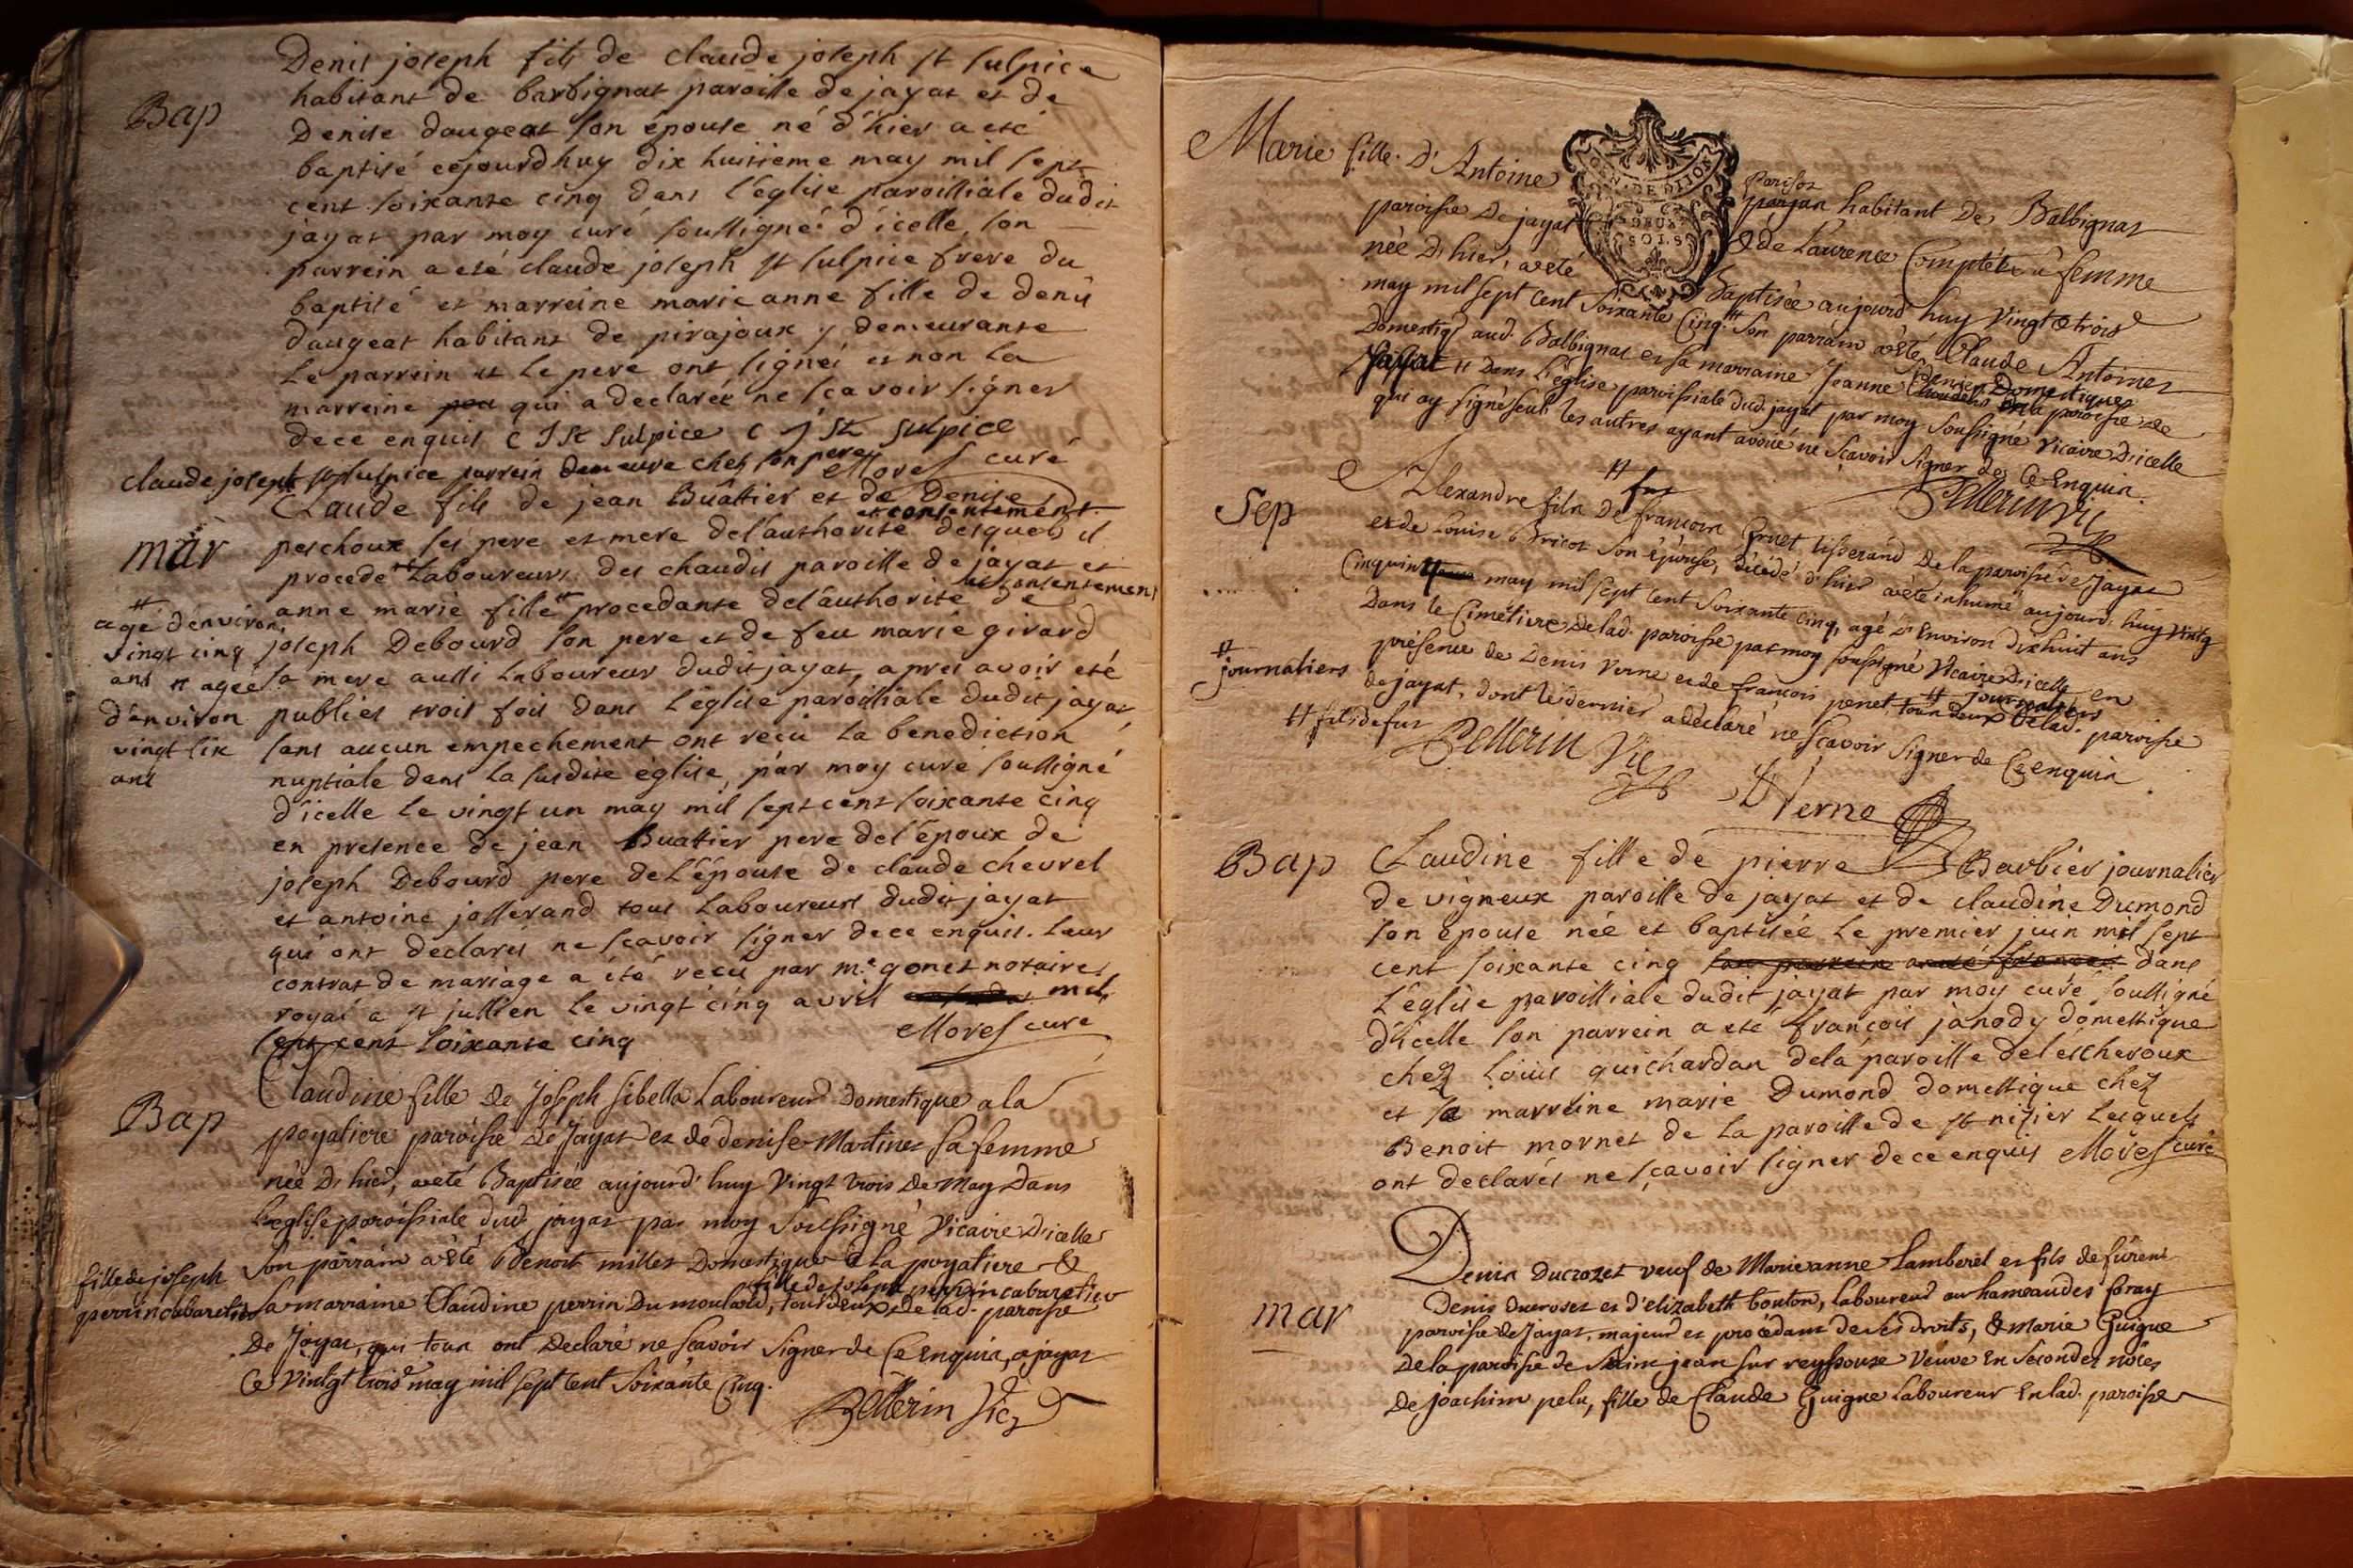 Denis joseph fils de claude joseph st sulpice
habitant de barbignat paroisse de jayat et de
Bap
Denise daugeat son épouse né d'hier a eté
baptisé cejourdhuy dix huitieme may mil sept
cent soixante cinq dans l'église paroissiale dudit
jayat par moy curé soussigné d'icelle, son
parrein a eté claude joseph st sulpice frere du
baptisé et marreine marie anne fille de denis
daugeat habitant de pirajoux y demeurante
Le parrein et le pere ont signéi et non la
marreine qui a declarée ne sçavoir signer
dece enquis C J St Sulpice C J St Sulpice
claude joseph st sulpice parrein demeure chez son pere Morel curé
Claude fils de jean Buattier et de Denise
et consentement
mar
perchoux ses pere et mere de l'authorité desquels il
procede Laboureurs des chaudis paroisse de jayat et
et consentement
anne marie fille procedante de l'authorité de
agé d'environ
vingt cinq
ans agée
d'environ
vingt six
ans
joseph Debourd son pere et de feu marie girard
sa mere aussi Laboureur dudit jayat, apres avoir eté
publiés trois fois dans L'église paroissiale dudit jayat
sans aucun empechement ont reçu la benediction
nuptiale dans la susdite église, par moy curé soussigné
d'icelle le vingt un may mil sept cent soixante cinq
en presence de jean Buattier pere de l'époux de
joseph Debourd pere de L'épouse de claude chevrel
et antoine josserand tous Laboureurs dudit jayat
qui ont declarés ne sçavoir signer dece enquis. Leur
contrat de mariage a été reçu par me gonet notaire
royal a st jullien le vingt cinq avril mil
sept cent soixante cinq Morel curé
Claudine fille de Joseph sibella Laboureur Domestique a la
Bap
poyatiere paroisse de Jayat et de denise Martinet sa femme
née D'hier, a eté Baptisée aujourd'huy Vingt trois de May Dans
L'eglise paroissiale dud. jayat par moy Soussigné Vicaire D'icelle
Son parrain a été Benoit millet Domestique a La poyatiere &
fille de joseph
perrin cabaretier
fille de joseph perrin cabaretier
sa marraine Claudine perrin Du moulard, tous deux de lad. paroisse
De Jayat, qui tous ont Declaré ne scavoir signer de Ce Enquis, a jayat
Ce Vintgt trois may mil sept cent Soixante Cinq.
Pellerin Vic
Marie fille D'Antoine
GEN. DE DIJON
Parisot
habitant De Balbignat
paroisse De jayat & de Laurence femme
née D'hier, a eté Baptisée aujourd'huy Vingt & trois
may mil sept Cent Soixante Cinq. Son parrain a été Claude Antoine
Domestiq. aud. Balbignat et sa marraine Jeanne Domestiques
paroisse de
Jayat Dans L'eglise paroissiale dud. jayat par moy Soussigné Vicaire D'icelle
qui ay signé seul, les autres ayant avoué ne Sçavoir Signer de Ce Enquis.
Pellerin Vic
Sep
Alexandre fils De francois tisserand De la paroisse de Jayat
et de Louise Bricot Son épouse, décédé d'hier a été inhumé aujourd'huy Vintg
Cinq may mil sept cent Soixante Cinq, agé D'Environ Dixhuit ans
Dans le Cimetiere de lad. paroisse par moy Soussigné Vicaire D'icelle en
journaliers
présence de Denis Verne et de françois penet, journaliers
tous deux De lad. paroisse
de jayat, dont le dernier a déclaré ne sçavoir signer de Ce enquis
fils de fus
Pellerin Vic
Verne
Bap
Claudine fille de pierre Barbier journalier
de vigneux paroisse de jayat et de claudine Dumond
son épouse née et baptisée Le premier juin mil sept
cent soixante cinq dans
L'église paroissiale dudit jayat par moy curé soussigné
d'icelle son parrein a eté françois janody domestique
chez Loüis guichardan de la paroisse de lescheroux
et sa marreine marie Dumond domestique chez
Benoit mornet de la paroisse de st nizier Lesquels
ont declarés ne sçavoir signer de ce enquis Morel curé
Denis Ducrozet veuf de Marieanne Lamberel et fils de fürent
mar
Denis Ducrozet et d'elizabeth bouton, laboureur au hameau des foray
paroisse de Jayat, majeur et procédant de ses droits, & Marie Guigue
De la paroisse de Saint jean sur reyssouze Veuve En Secondes nôces
De Joachim pelu, fille de Claude Guigue Laboureur En lad. paroisse